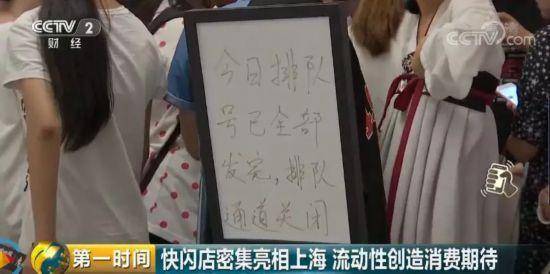 CCTV 2
财经
CCTV.com
今日排队
号已全部
发完,排队
通道关闭
第一时间
快闪店密集亮相上海 流动性创造消费期待